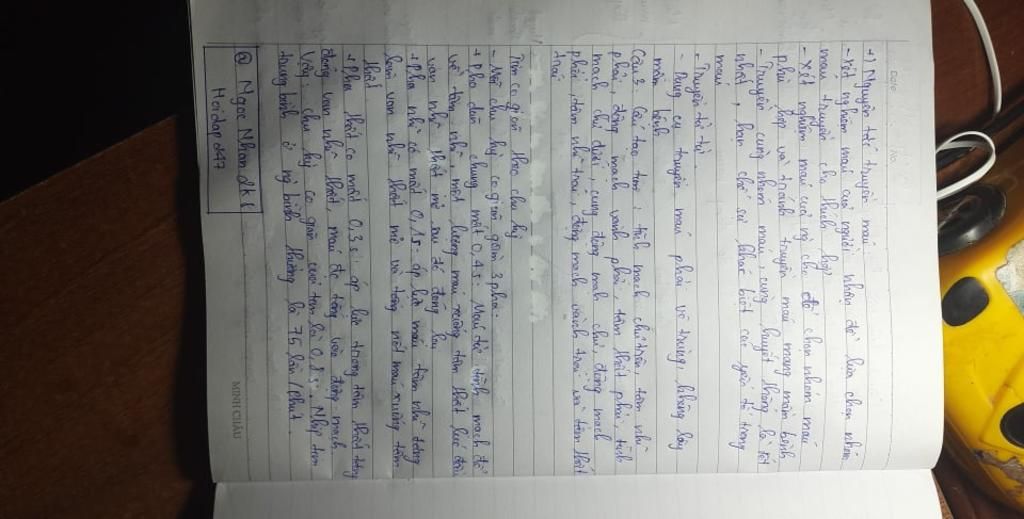 +) Nguyên tắc truyền máu
- Xét nghiệm máu của người nhận để lựa chọn nhóm
máu truyền cho thích hợp
- Xét nghiệm máu của ng cho để chọn nhóm máu
phù hợp và tránh truyền máu mang mầm bệnh
- Truyền cùng nhóm máu, cùng huyết thống là tốt
nhất, hạn chế sự khác biệt các yếu tố trong
máu
- Truyền từ từ
- Dụng cụ truyền máu phải vô trùng, không lây
mầm bệnh
Câu 2: Cấu tạo tim: tĩnh mạch chủ trên, tâm nhĩ
phải, động mạch vành phải, tâm thất phải, tĩnh
mạch chủ dưới, cung động mạch chủ, động mạch
phổi, tâm nhĩ trái, động mạch vành trái và tâm thất
trái
Tim co giãn theo chu kỳ
- Mỗi chu kỳ co giãn gồm 3 pha:
+ Pha dãn chung mất 0,4s: Máu từ tĩnh mạch đổ
về tâm nhĩ, một lượng máu xuống tâm thất lúc đầu
van nhĩ thất mở sau đó đóng lại
+ Pha nhĩ co mất 0,1s: áp lực máu tâm nhĩ tăng
làm van nhĩ thất mở và tống nốt máu xuống tâm
thất
+ Pha thất co mất 0,3s: áp lực trong tâm thất tăng
đóng van nhĩ thất, máu đc tống vào động mạch
Vậy: chu kỳ co giãn của tim là 0,8s. Nhịp tim
trung bình ở ng bình thường là 75 lần/phút.
@ Ngoc Nhan
Hoidap 247
MINH CHÂU